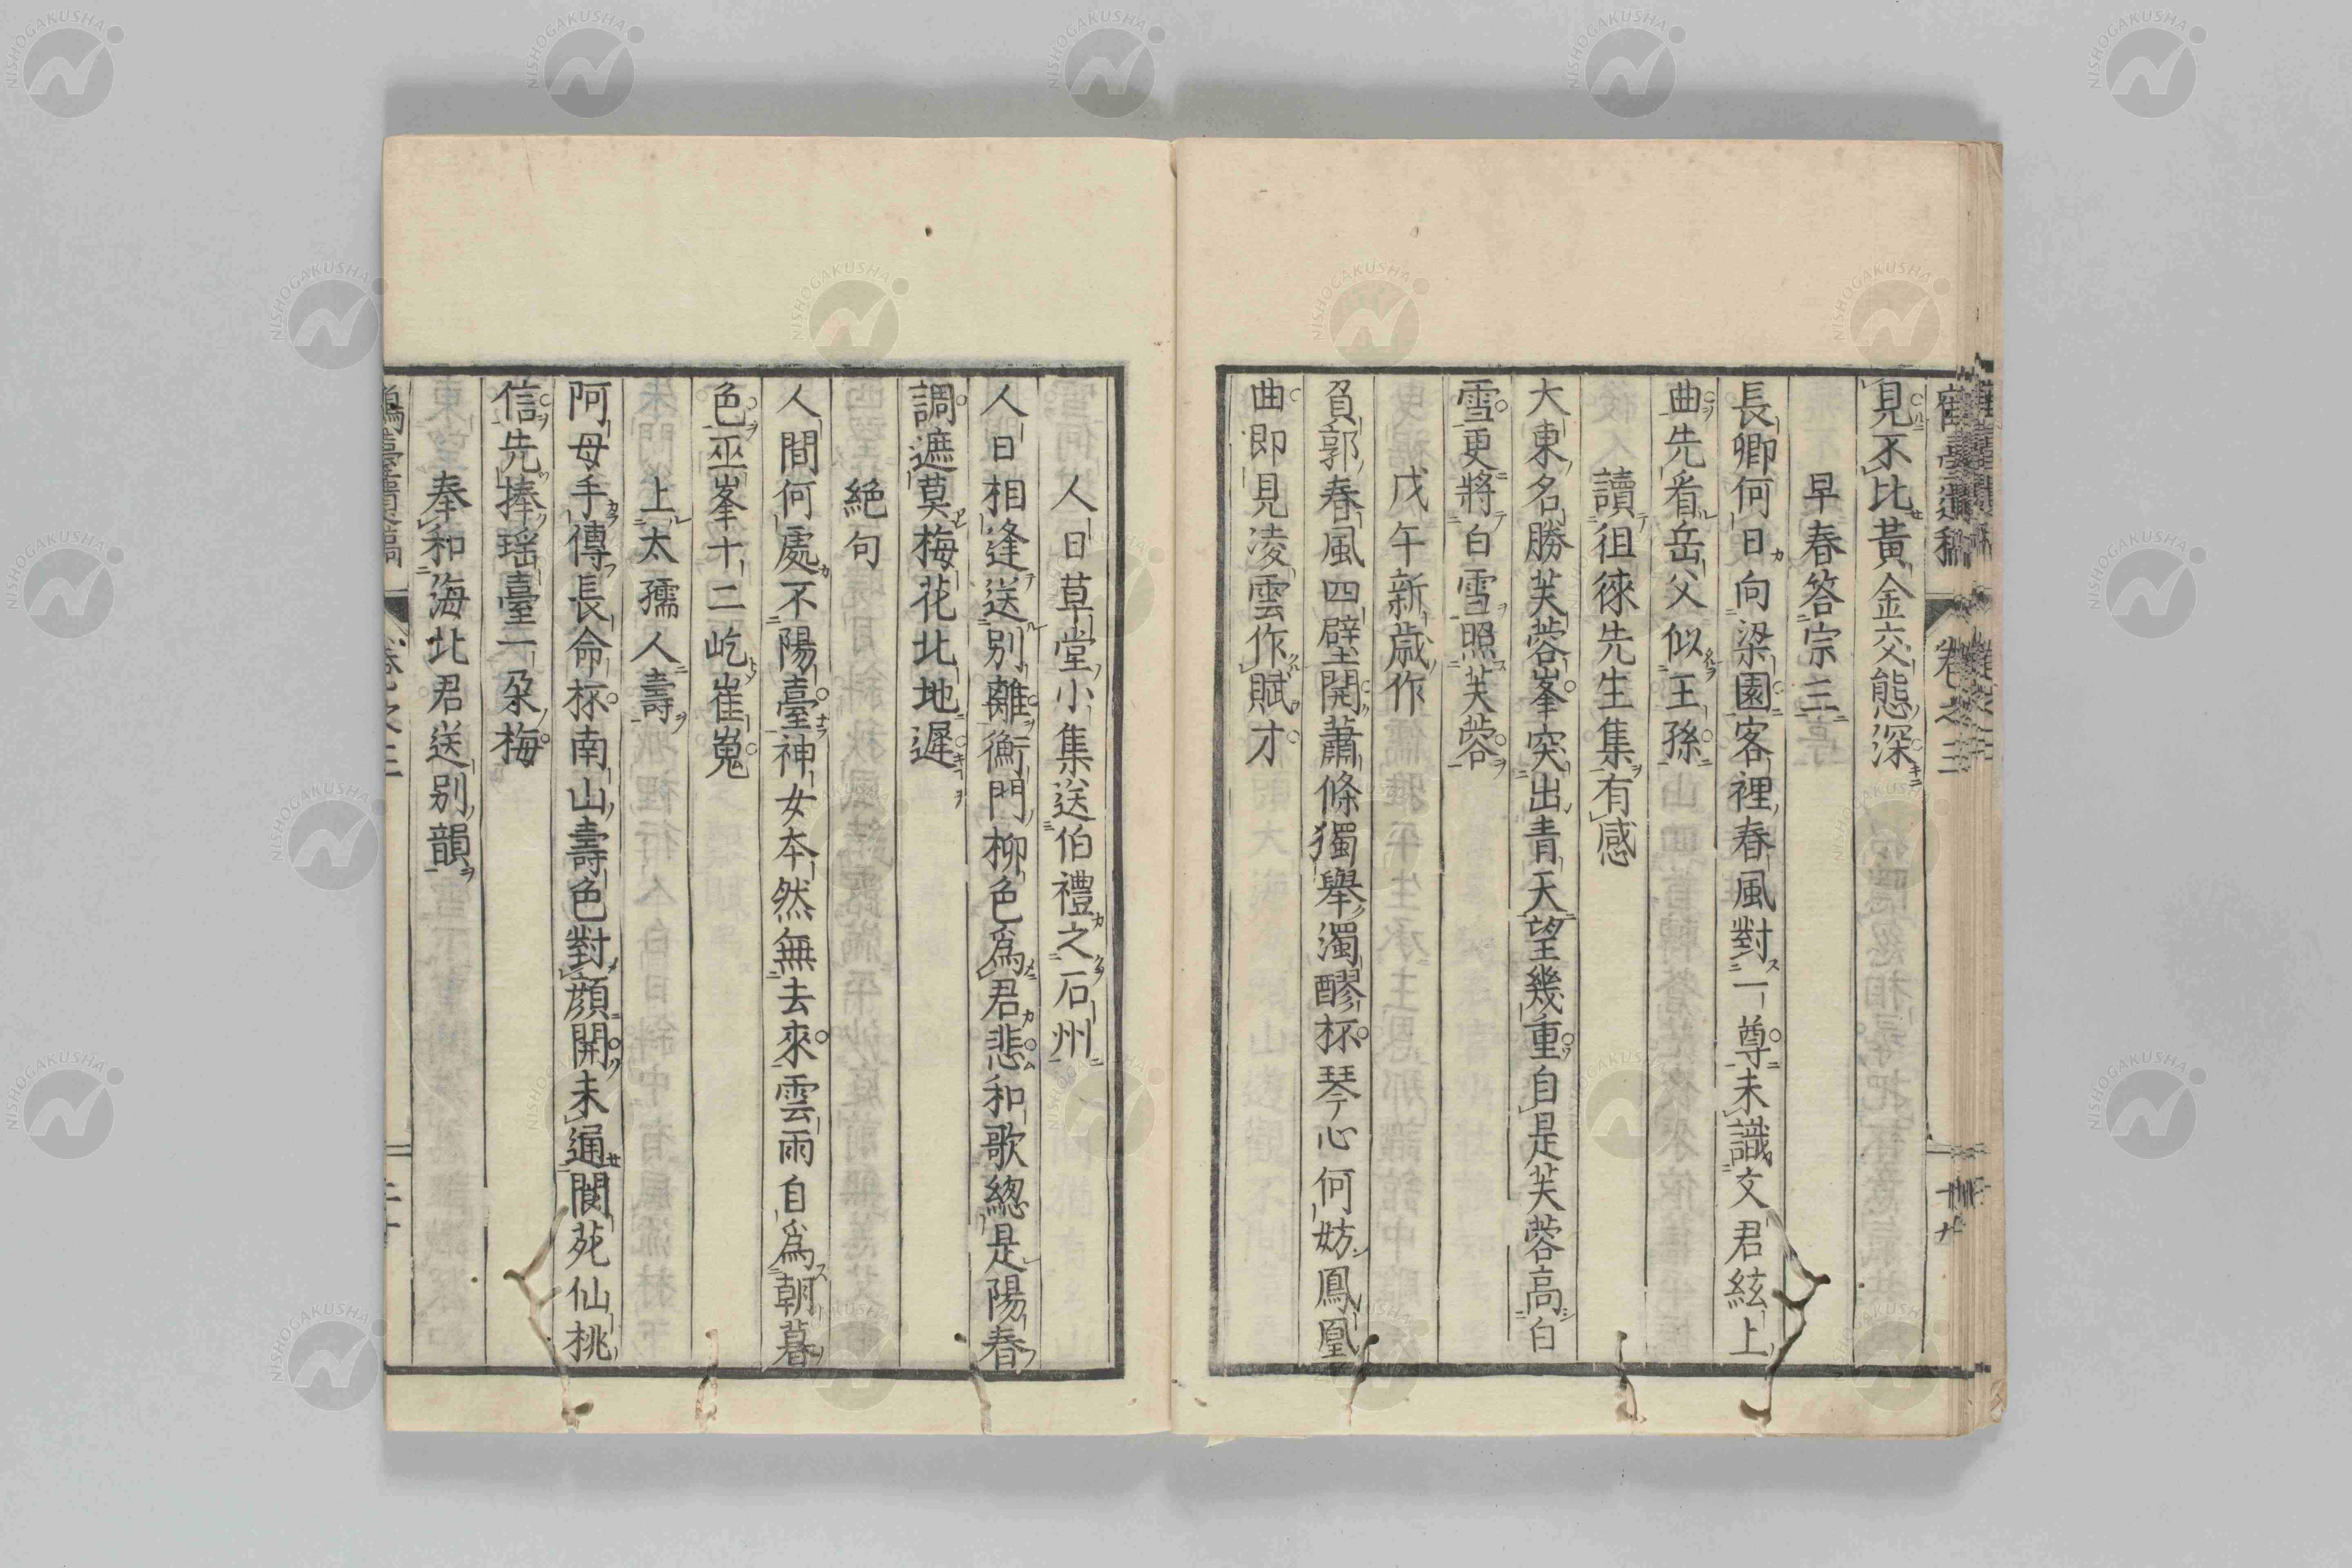 見不比黃金交態深
早春答宗三
長卿何日向梁園客裡春風對一尊未識文君絃上
曲先看岳父似王孫
讀徂徠先生集有感
大東名勝芙蓉峯突出青天望幾重自是芙蓉高白
雪更將白雪照芙蓉
戊午新歲作
負郭春風四壁開蕭條獨舉濁醪杯琴心何妨鳳凰
曲即見凌雲作賦才
人日草堂小集送伯禮之石州
人日相逢送別離衡門柳色爲君悲和歌總是陽春
調遮莫梅花北地遲
絕句
人間何處不陽臺神女本然無去來雲雨自爲朝暮
色巫峯十二屹崔嵬
上太孺人壽
阿母手傳長命杯南山壽色對顏開未通閬苑仙桃
信先捧瑤臺一朶梅
奉和海北君送別韻
NISHOGAKUSHA